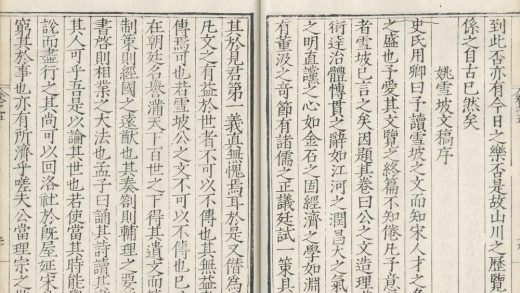 到此否亦有今日之樂否是故山川之歷覽
係之自古已然矣
姚雪坡文稿序
史氏用卿曰予讀雪坡之文而知宋人才之
之盛也予愛其文覽之終篇不知倦凡予意
者雪坡已言之矣因題其卷曰公之文造理
術逹治體愽貫之辭如江河之潤昌大之氣
之明直讜之心如金石之固經濟之學如淵
有董汲之竒節有諸儒之正議廷試一策具
其於見君第一義直無愧焉耳於是又僣爲
凡文之有益於世者不可以不傳也其無益
傳焉可也若雪坡公之文不可以不傳也已
在朝姓名譽滿天下百世之下得其遺文而
制策則經國之遠猷也其奏劄則輔理之要
書啓則相業之大法也孟子曰誦其詩讀其
其人可乎吾是以論其世也若使當其時能
說而盡行之其尚可以回洛社於旣屋延宋
窮其於事也亦有所濟乎嗟夫公當理宗之世